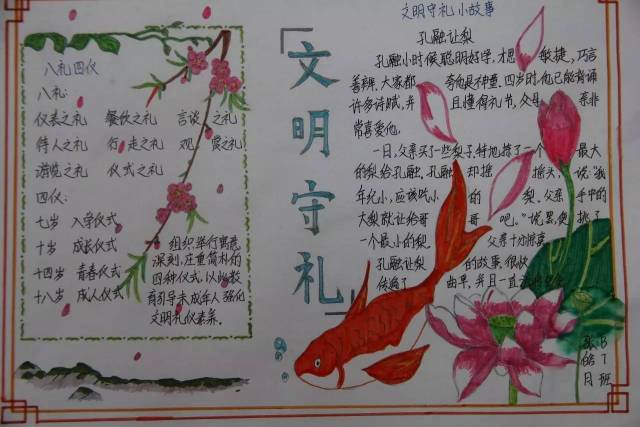 八礼四仪
八礼:
仪表之礼 餐饮之礼 言谈之礼
待人之礼 行走之礼 观赏之礼
游览之礼 仪式之礼
四仪:
七岁 入学仪式
十岁 成长仪式
十四岁 青春仪式
十八岁 成人仪式
组织举行寓意
深刻,庄重简朴的
四种仪式,以此教
育引导未成年人强化
文明礼仪素养。
「文明守礼」
文明守礼小故事
孔融让梨
孔融小时候聪明好学,才思敏捷,巧言
善辩,大家都夸他是神童。四岁时,他已能背诵
许多诗赋,并且懂得礼节,父母亲非
常喜爱他。
一日,父亲买了一些梨子,特地挑了一个最大
的梨给孔融,孔融却摇摇头,说:“我
年纪小,应该吃小的梨。父亲手中的
大梨就让给哥哥吧。”说罢便挑了
一个最小的梨。父亲十分
孔融让梨的故事,很快
传遍了曲阜,并且一直
月班